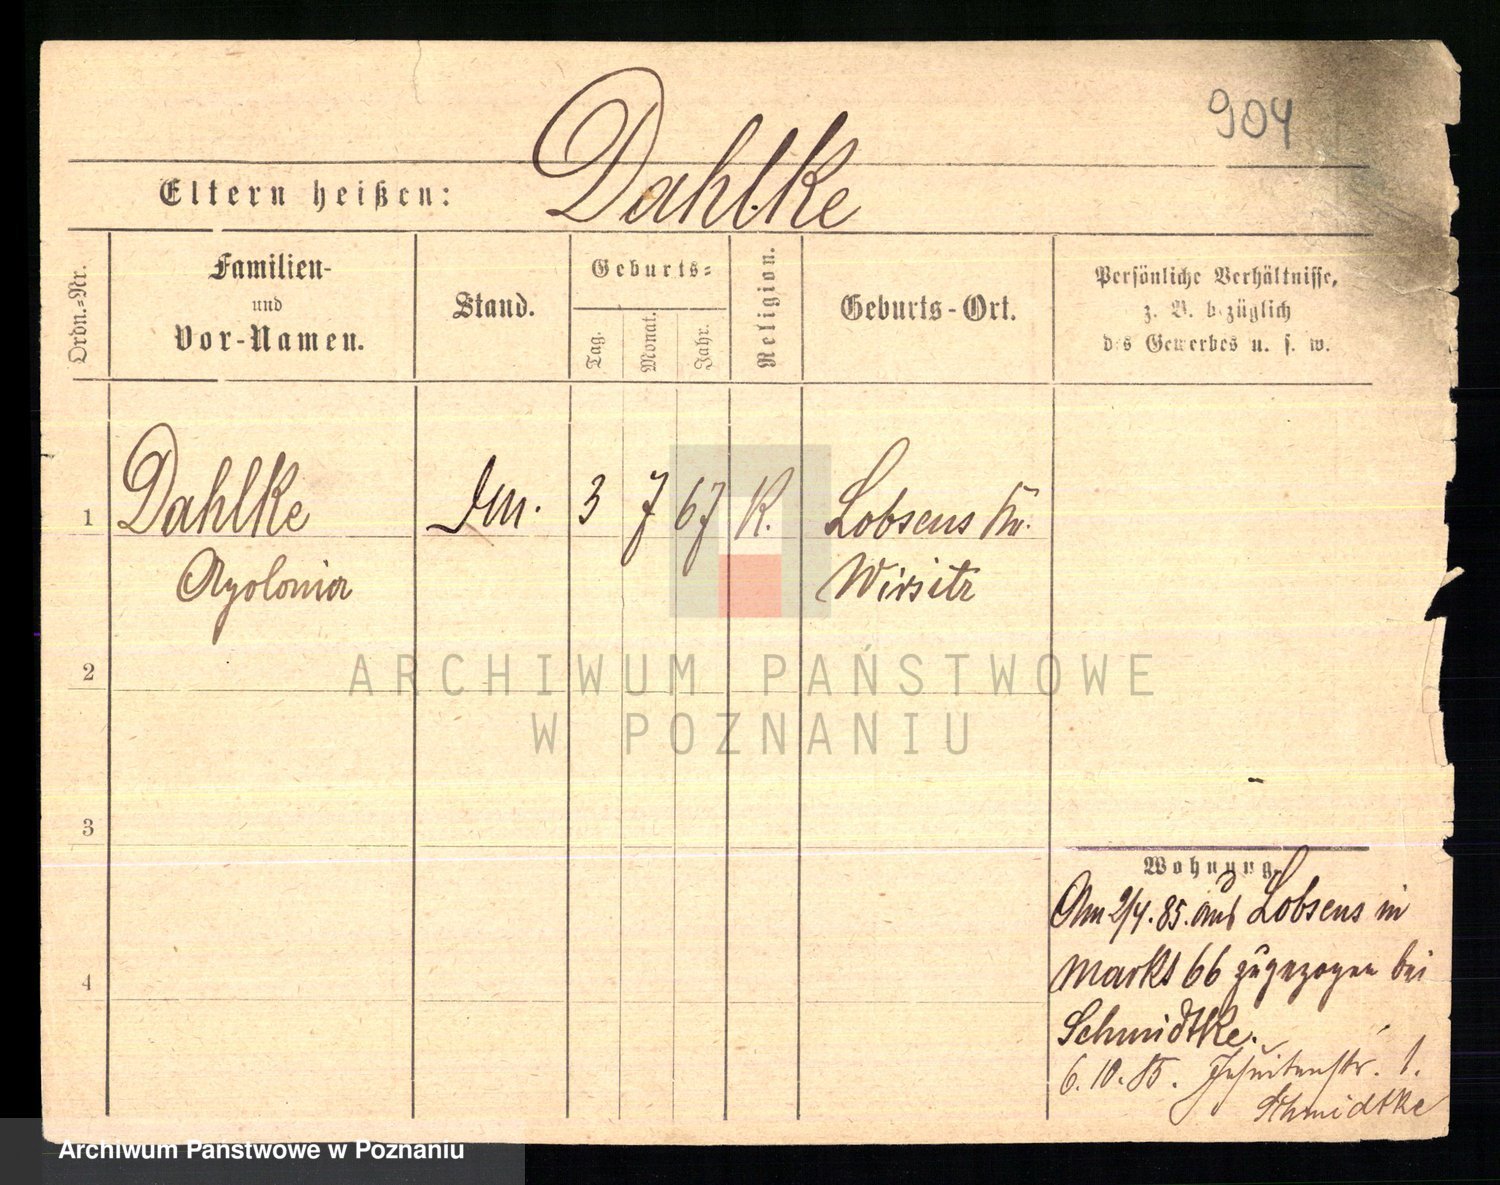 904
Dahlke
Eltern heißen:
Ordn.-Nr.
Familien-
und
Vor-Namen.
Stand.
Geburts-
Tag.
Monat.
Jahr.
Religion.
Geburts-Ort.
Persönliche Verhältnisse,
z. B. bezüglich
des Gewerbes u. s. w.
1
Dahlke
3
7
67
K.
Lobsens Kr.
Apolonia
Wirsitz
2
ARCHIWUM PAŃSTWOWE
W POZNANIU
3
Wohnung.
Am 2/4. 85. aus Lobsens in
4
Markt 66 zugezogen bei
Schmidtke.
6. 10. 85. Jesuitenstr. 1.
Schmidtke
Archiwum Państwowe w Poznaniu